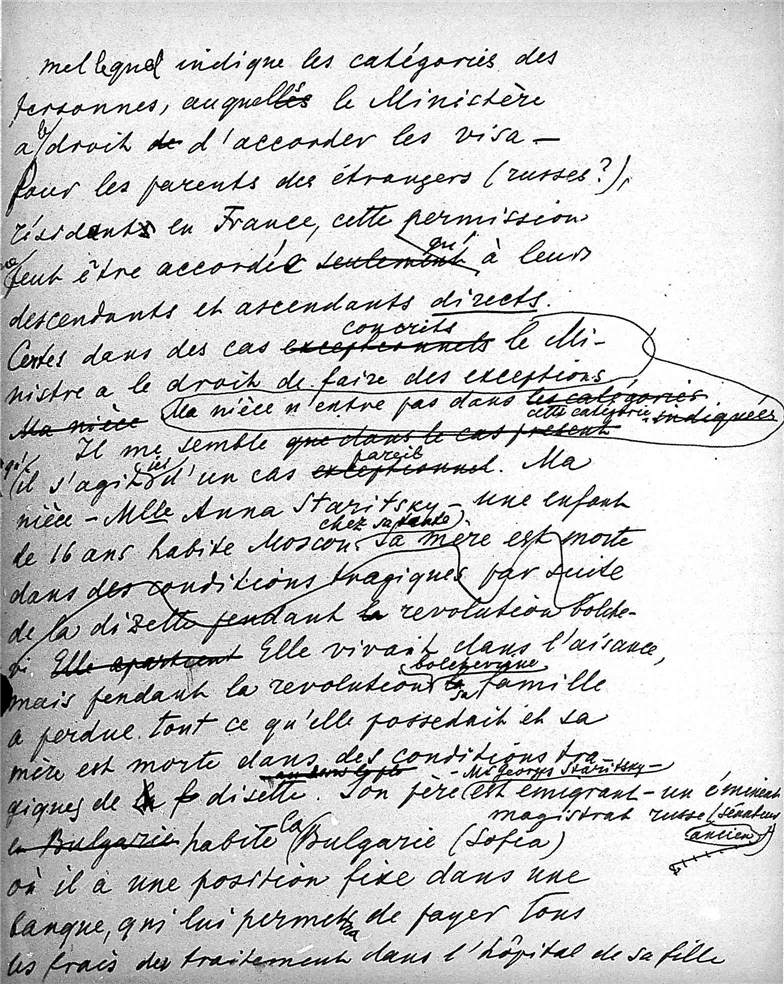 indique les catégories des
personnes, auquelles le Ministère
a le droit de d'accorder les visa —
Pour les parents des étrangers (russes?),
résidents en France, cette permission
peut être accordée seulement qu' à leurs
descendants et ascendants directs.
concrits
Certes dans des cas exceptionnels le Mi-
nistre a le droit de faire des exceptions
Ma nièce Ma nièce n'entre pas dans les catégories
cette catégorie indiquées
Il me semble que dans le cas présent
qu'il s'agit ici d'un cas exceptionnel. Ma
pareil
nièce – Mlle Anna Staritsky – une enfant
chez sa tante
de 16 ans habite Moscou. Sa mère est morte
dans des conditions tragiques par suite
de la dizette pendant la revolution bolche-
vi Elle apartient Elle vivait dans l'aisance,
bolchevique
mais pendant la revolution la sa famille
a perdue tout ce qu'elle possedait et sa
mère est morte dans des conditions tra-
– Mr Georges Staritsky –
giques de la disette. Son père est emigrant – un éminent
magistrat russe (sénateur
ancien)
en Bulgarie habite la Bulgarie (Sofia)
où il a une position fixe dans une
banque, qui lui permet de payer tous
les frais du traitement dans l'hôpital de sa fille